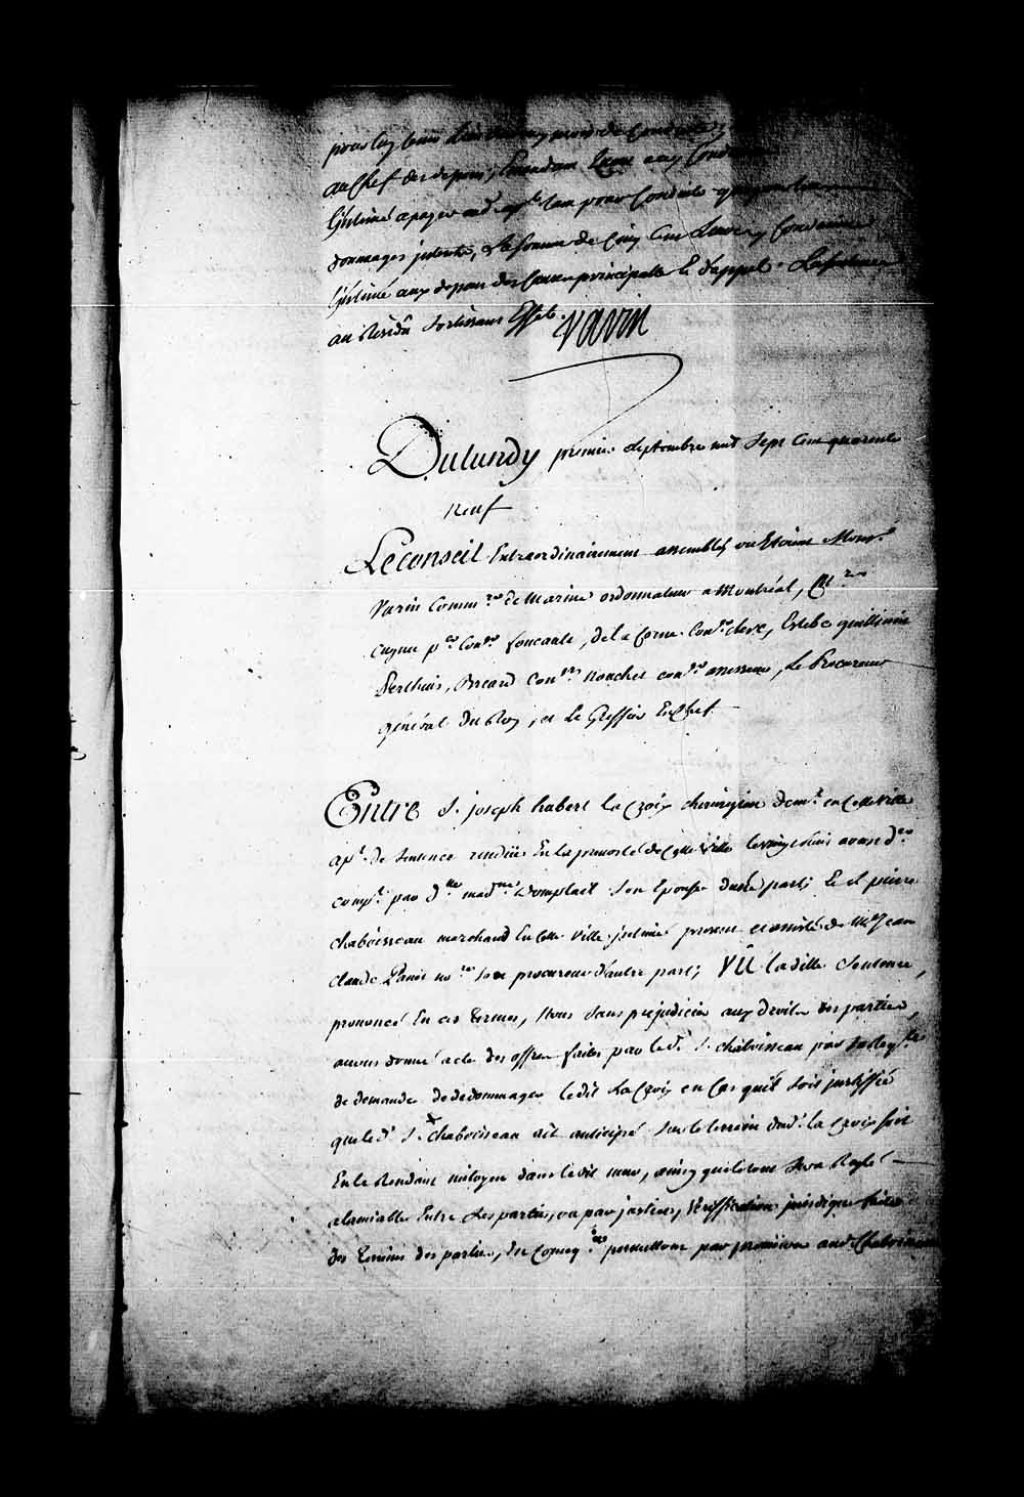 pour luy tenir lieu
au chef des depens, Emendant
l'Intimé a payer aud. apt. tant pour
dommages interets, la somme de Cinq Cens Livres, Condamne
l'Intimé aux depens des Causes principale et d'appel. La sentence
au Residu Sortissant Effet. Varin
Du lundy premier Septembre mil Sept Cent quarente
neuf
Le conseil Extraordinairement assemblé, ou Etoient Monsr.
Varin Commre. de Marine ordonnateur a Montréal, Mrs.
Cugnet pr. Conr. foucault, de la Corne Conr. clerc, Estebe guillimin
Perthuis, Breard Conrs. Nouchet conr. assesseur, Le Procureur
général du Roy, et le Greffier En Chef.
Entre S. joseph hubert la Croix chirurgien demt. en cette ville
apt. de Sentence rendüe En la prevosté de Cette Ville
compt. par dlle. madne. dontplait Son Epouse d'une part; Et Sr. pierre
chaboisseau marchand En cette ville intimé present et assisté de Me. Jean
claude Panet nore. Son procureur d'autre part; VÛ ladite Sentence,
prononcé En ces termes, Nous Sans prejudicier aux droits des parties,
avons donné acte des offres faites par led. S. chaboisseau par
de demande de dedommager ledit La Croix en Cas qu'il Soit justiffié
que led. S. chaboisseau ait anticipé Sur le terrein dud. la Croix soit
En le Rendant mitoyen dans ledit mur, ainsy que le tout Sera Reglé
a lamiable Entre les parties, ou par justice, Veriffication juridique faite
des terreins des parties, En Conseqce. permettons par provision aud. Chaboisseau